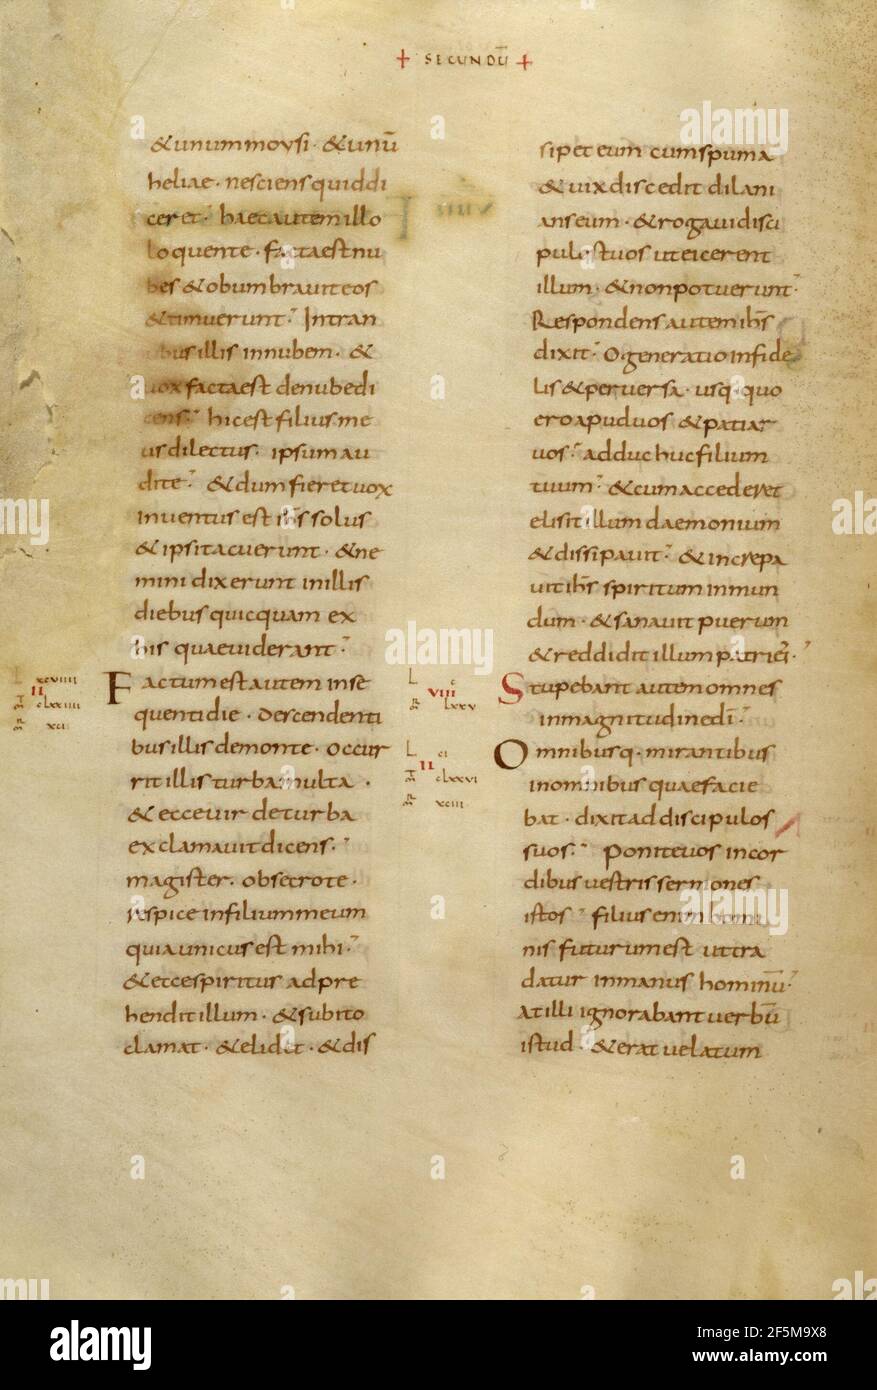 + SECUNDŪ +
&unum moysi · &unū
heliae · nesciens quid di
ceret · haec autem illo
loquente · facta est nu
bes & obumbravit eos
& timuerunt · Intran
bus illis in nubem · &
vox facta est de nube di
cens · hic est filius me
us dilectus · ipsum au
dite · & dum fieret vox
inventus est ih̄s solus
& ipsi tacuerunt · & ne
mini dixerunt in illis
diebus quicquam ex
his quae viderant ·
L xcviiii
II
clxxiiii
xci
Factum est autem in se
quenti die · Descendenti
bus illis de monte · occur
rit illis turba multa ·
& ecce vir de turba
exclamavit dicens ·
magister · obsecro te ·
respice in filium meum
quia unicus est mihi ·
& ecce spiritus adpre
hendit illum · & subito
clamat · & elidit · & dis
sipet eum cum spuma
& vix discedit dilani
ans eum · & rogavi disci
pulos tuos ut eicerent
illum · & non potuerunt ·
Respondens autem ih̄s
dixit · O generatio infide
lis & perversa · usq · quo
ero apud vos & patiar
vos · adduc huc filium
tuum · & cum accederet
elisit illum daemonium
& dissipavit · & increpa
vit ih̄s spiritum inmun
dum · & sanavit puerum
& reddidit illum patri ei ·
L c
VIII
lxxv
Stupebant autem omnes
in magnitudine dī ·
L ci
II
clxxvi
xciii
Omnibusq · mirantibus
in omnibus quae facie
bat · dixit ad discipulos
suos · Ponite vos in cor
dibus vestris sermones
istos · filius enim homi
nis futurum est ut tra
datur in manus hominū ·
At illi ignorabant verbū
istud · & erat velatum
alamy
Image ID: 2F5M9X8
www.alamy.com